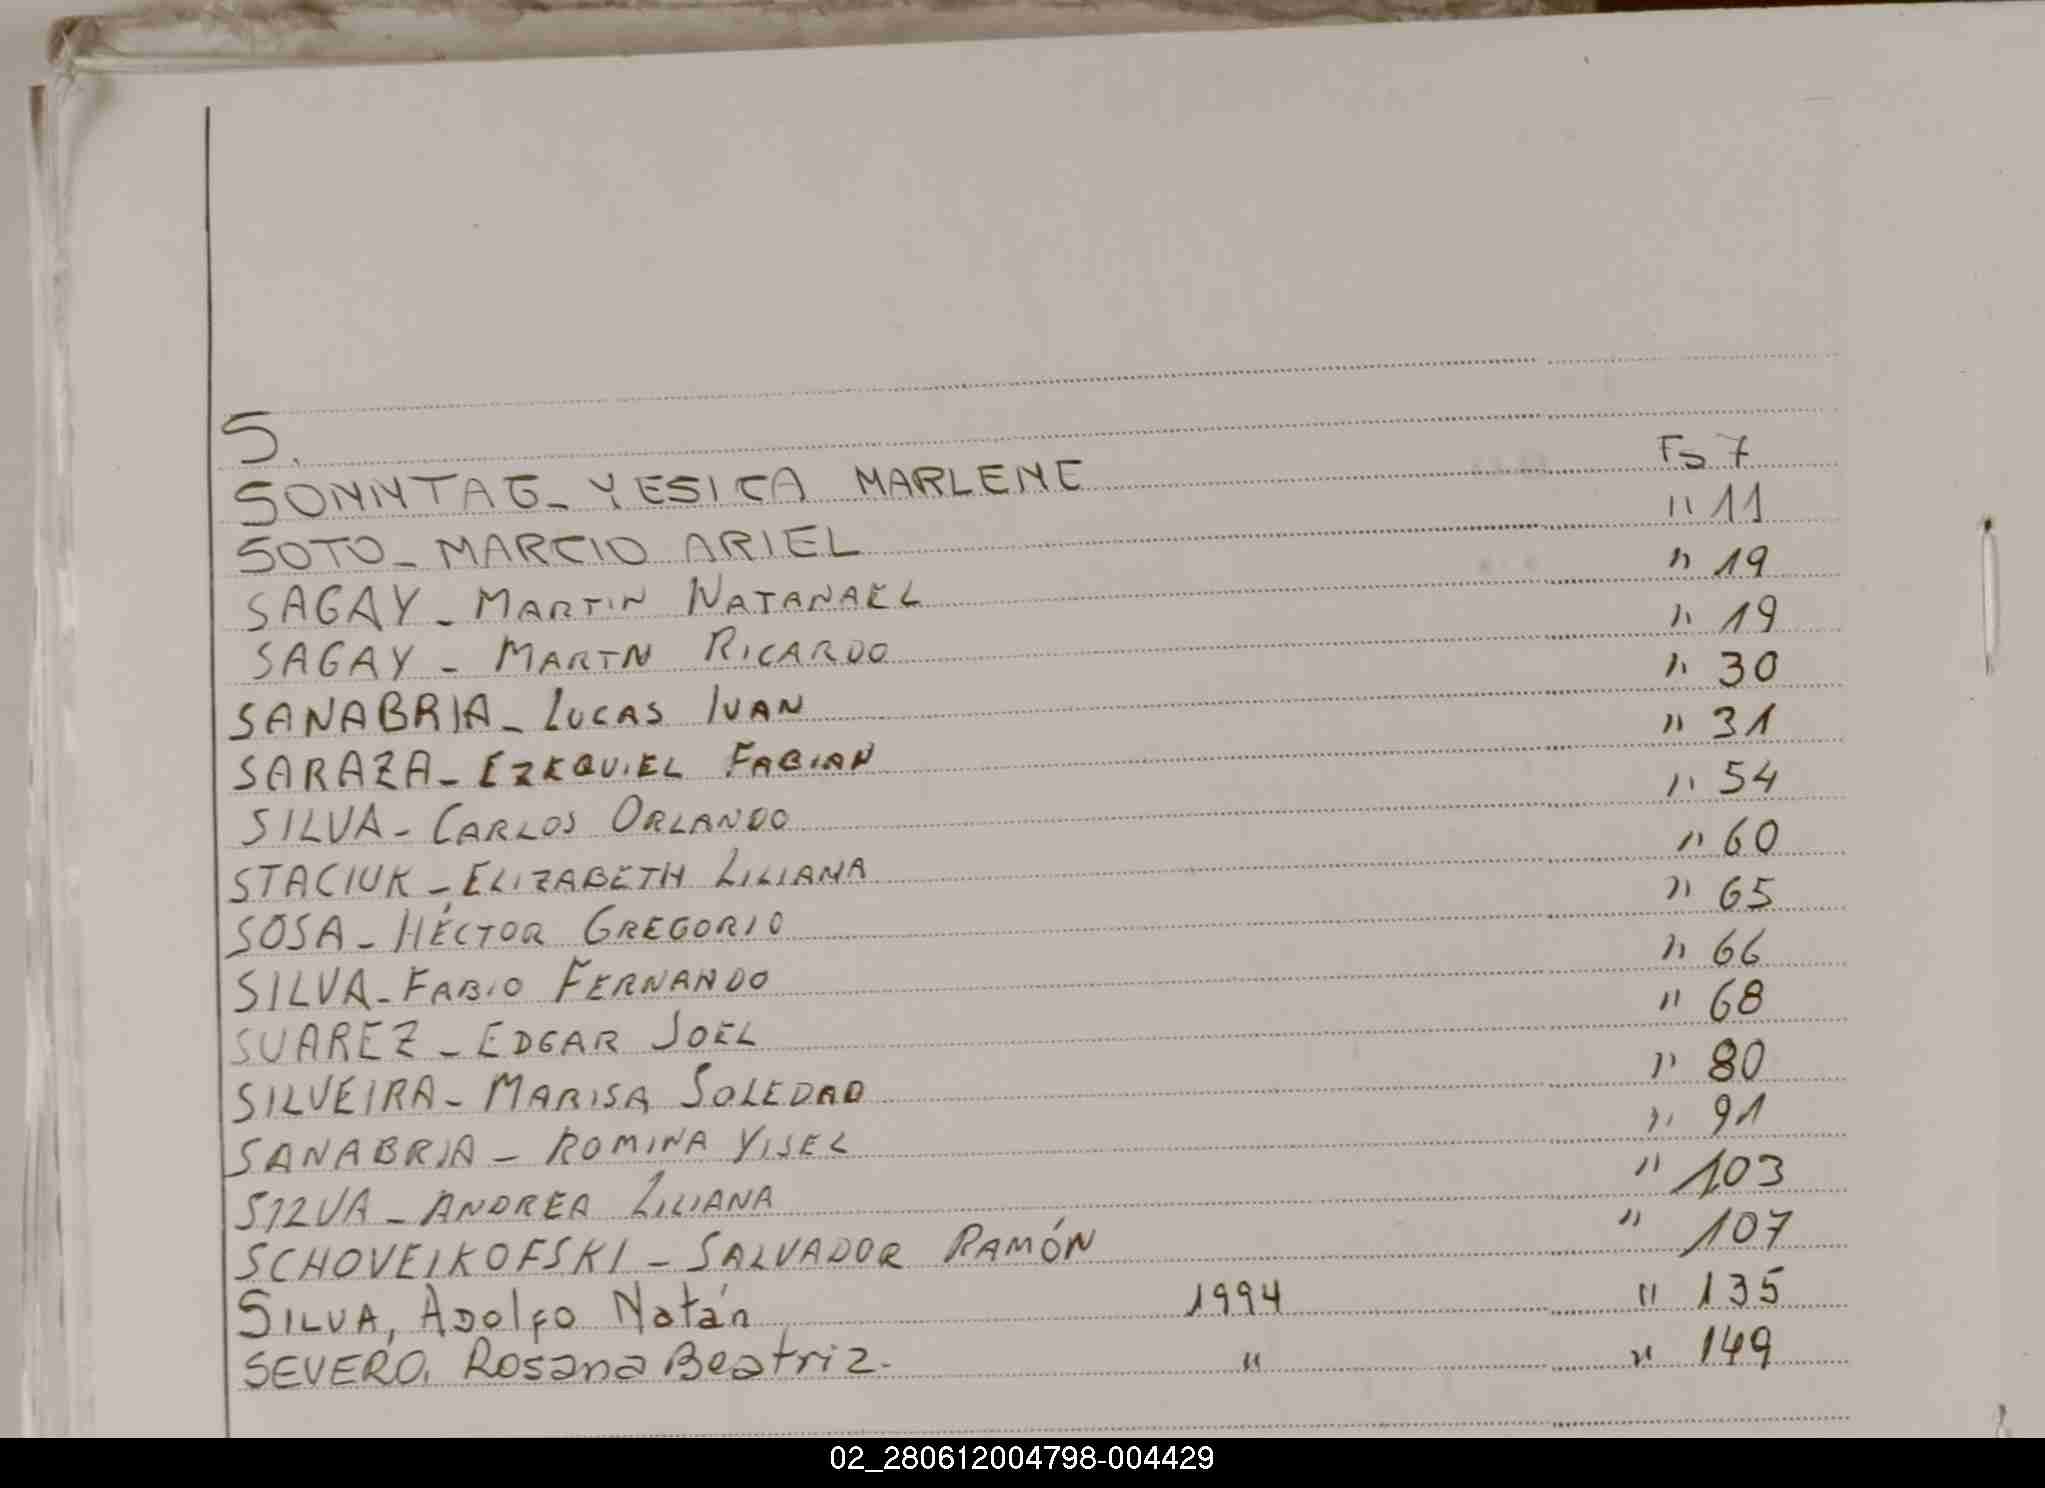 S.
SONNTAG_ YESICA MARLENE Fs 7
SOTO_ MARCIO ARIEL " 11
SAGAY_ MARTIN NATANAEL " 19
SAGAY - MARTN RICARDO " 19
SANABRIA_ LUCAS IVAN " 30
SARAZA_ EZEQUIEL FABIAN " 31
SILVA- CARLOS ORLANDO " 54
STACIUK_ ELIZABETH LILIANA " 60
SOSA_ HÉCTOR GREGORIO " 65
SILVA- FABIO FERNANDO " 66
SUAREZ_ EDGAR JOEL " 68
SILVEIRA- MARISA SOLEDAD " 80
SANABRIA - ROMINA YISEL " 91
SILVA_ ANDREA LILIANA " 103
SCHOVEIKOFSKI - SALVADOR RAMÓN " 107
SILVA, Adolfo Natán 1994 " 135
SEVERO, Rosana Beatriz. " " 149
02_280612004798-004429